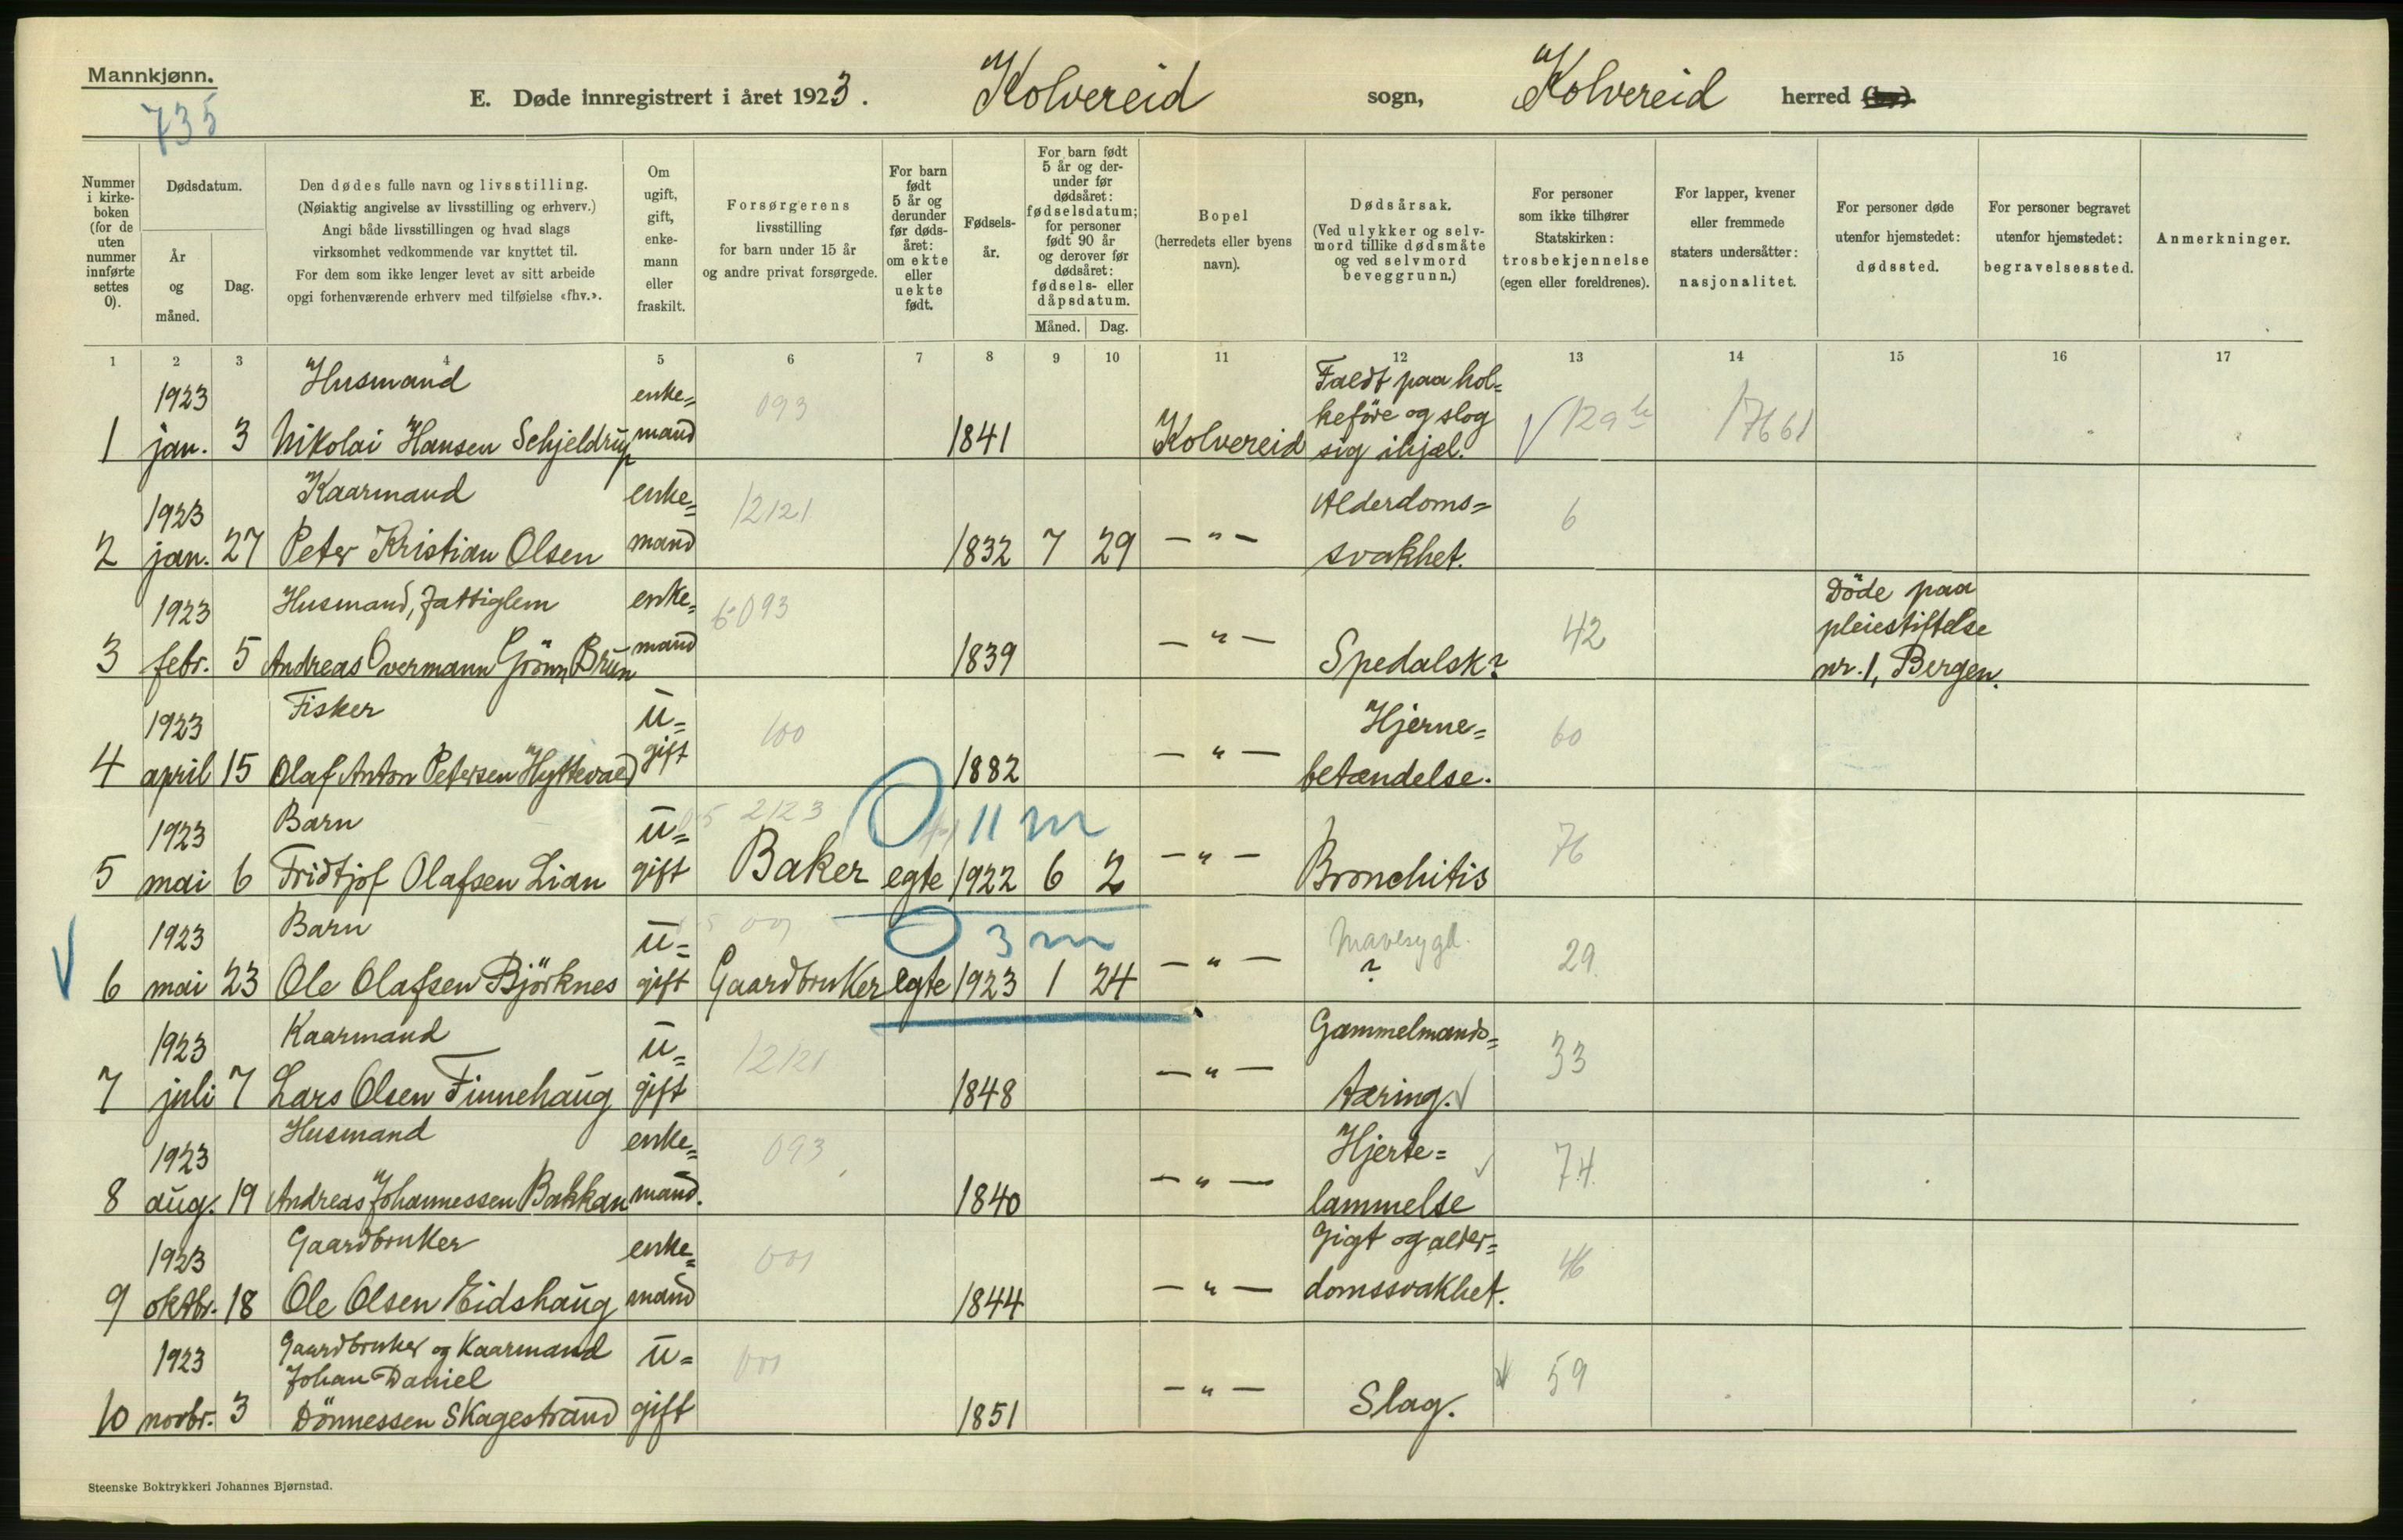 Mannkjønn.
735
E. Døde innregistrert i året 1923. Kolvereid sogn, Kolvereid herred (by).
Nummer i kirke- boken (for de uten nummer innførte settes 0).
Dødsdatum.
År og måned.
Dag.
Den dødes fulle navn og livsstilling.
(Nøiaktig angivelse av livsstilling og erhverv.)
Angi både livsstillingen og hvad slags
virksomhet vedkommende var knyttet til.
For dem som ikke lenger levet av sitt arbeide
opgi forhenværende erhverv med tilføielse «fhv.».
Om ugift, gift, enke- mann eller fraskilt.
Forsørgerens
livsstilling
for barn under 15 år
og andre privat forsørgede.
For barn født 5 år og derunder før døds- året: om ekte eller uekte født.
Fødsels- år.
For barn født 5 år og der- under før dødsåret: fødselsdatum; for personer født 90 år og derover før dødsåret: fødsels- eller dåpsdatum.
Måned. Dag.
Bopel
(herredets eller byens
navn).
Dødsårsak.
(Ved ulykker og selv-
mord tillike dødsmåte
og ved selvmord
beveggrunn.)
For personer
som ikke tilhører
Statskirken:
trosbekjennelse
(egen eller foreldrenes).
For lapper, kvener
eller fremmede
staters undersåtter:
nasjonalitet.
For personer døde
utenfor hjemstedet:
dødssted.
For personer begravet
utenfor hjemstedet:
begravelsessted.
Anmerkninger.
1 2 3 4 5 6 7 8 9 10 11 12 13 14 15 16 17
1923 Husmand enke= 093 Faldt paa hol=
keföre og slog
1 jan. 3 Nikolai Hansen Schjeldrup mand 1841 Kolvereid sig ihjæl. 17661
1923 Kaarmand enke= 12121 Alderdoms= 6
2 jan. 27 Peter Kristian Olsen mand 1832 7 29 — " — svakhet.
1923 Husmand, fattiglem enke= 6-093 42 Döde paa
pleiestiftelse
3 febr. 5 Andreas Overmann Grönn Brun mand 1839 — " — Spedalsk? nr. 1, Bergen.
1923 Fisker u= 100 Hjerne= 60
4 april 15 Olaf Anton Petersen Hyttevaed gift 1882 — " — betændelse.
1923 Barn u= 2123 0 11 m 76
5 mai 6 Fridtjof Olafsen Lian gift Baker egte 1922 6 2 — " — Bronchitis
1923 Barn u= 001 0 3 m Mavesygd. 29
6 mai 23 Ole Olafsen Björknes gift Gaardbruker egte 1923 1 24 — " — ?
1923 Kaarmand u= 12121 Gammelmands= 33
7 juli 7 Lars Olsen Finnehaug gift 1848 — " — tæring.
1923 Husmand enke= 093 Hjerte= 74
8 aug. 19 Andreas Johannessen Bakkan mand. 1840 — " — lammelse
1923 Gaardbruker enke= 001 Gigt og alder= 46
9 oktbr. 18 Ole Olsen Eidshaug mand 1844 — " — domssvakhet.
1923 Gaardbruker og Kaarmand u= 001 59
Johan Daniel
10 novbr. 3 Dönnessen Skagestrand gift 1851 — " — Slag.
Steenske Boktrykkeri Johannes Bjørnstad.